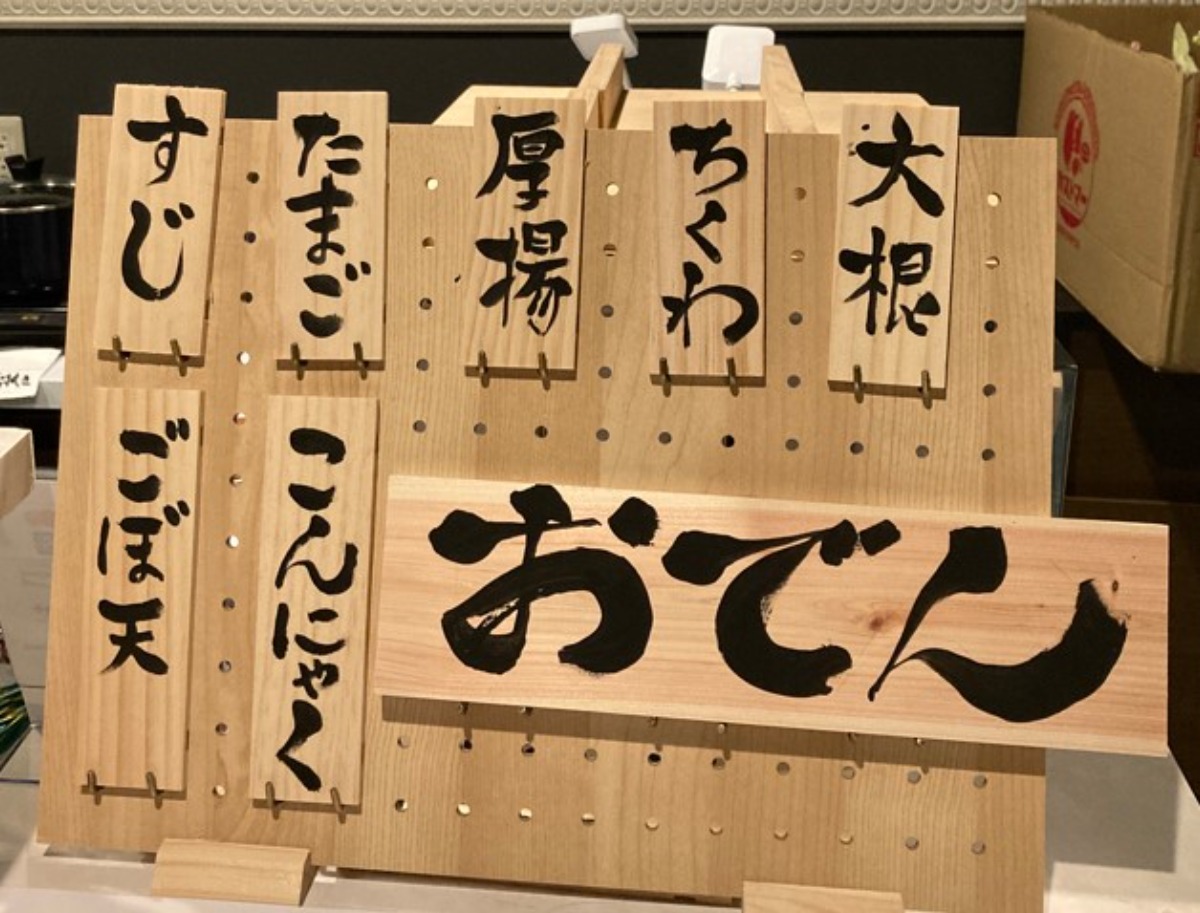 大根
ちくわ
厚揚
たまご
すじ
おでん
こんにゃく
ごぼ天